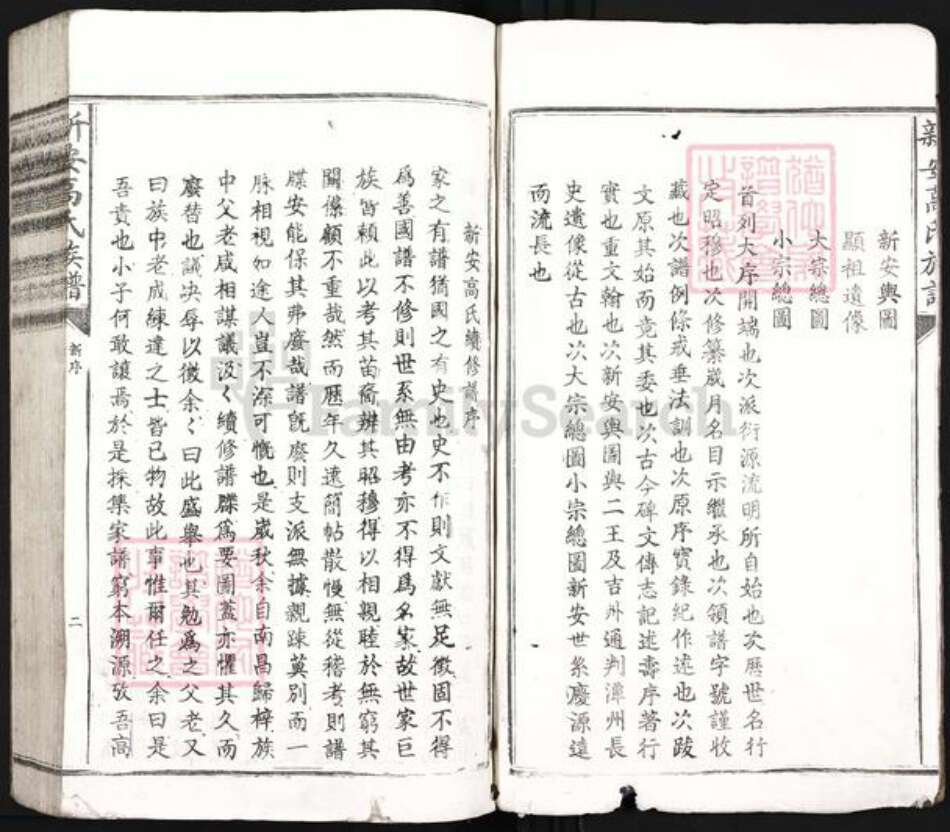 新安高氏族譜
新安輿圖
顯祖遺像
大宗總圖
小宗總圖
首列大序開端也次派衍源流明所自始也次歷世名行
定昭穆也次修纂歲月名目示繼承也次領譜字號謹收
藏也次譜例條戒垂法訓也次原序實錄紀作述也次跋
文原其始而竟其委也次古今碑文傳志記述壽序著行
實也重文翰也次新安輿圖與二王及吉州通判漳州長
史遺像從古也次大宗總圖小宗總圖新安世系慶源遠
而流長也
新安高氏續修譜序
家之有譜猶國之有史也史不作則文獻無足徵固不得
爲善國譜不修則世系無由考亦不得爲名家故世家巨
族皆賴此以考其苗裔辨其昭穆得以相親睦於無窮其
關係顧不重哉然而歷年久遠簡帖散慢無從稽考則譜
牒安能保其弗廢哉譜旣廢則支派無據親疎莫別而一
脉相視如途人豈不深可慨也是歲秋余自南昌歸梓族
中父老咸相謀議汲〻續修譜牒爲要圖蓋亦懼其久而
廢替也議决辱以徵余〻曰此盛舉也其勉爲之父老又
曰族中老成練達之士皆已物故此事惟爾任之余曰是
吾責也小子何敢讓焉於是採集家譜窮本溯源攷吾高
新安高氏族譜
新序
二
FamilySearch